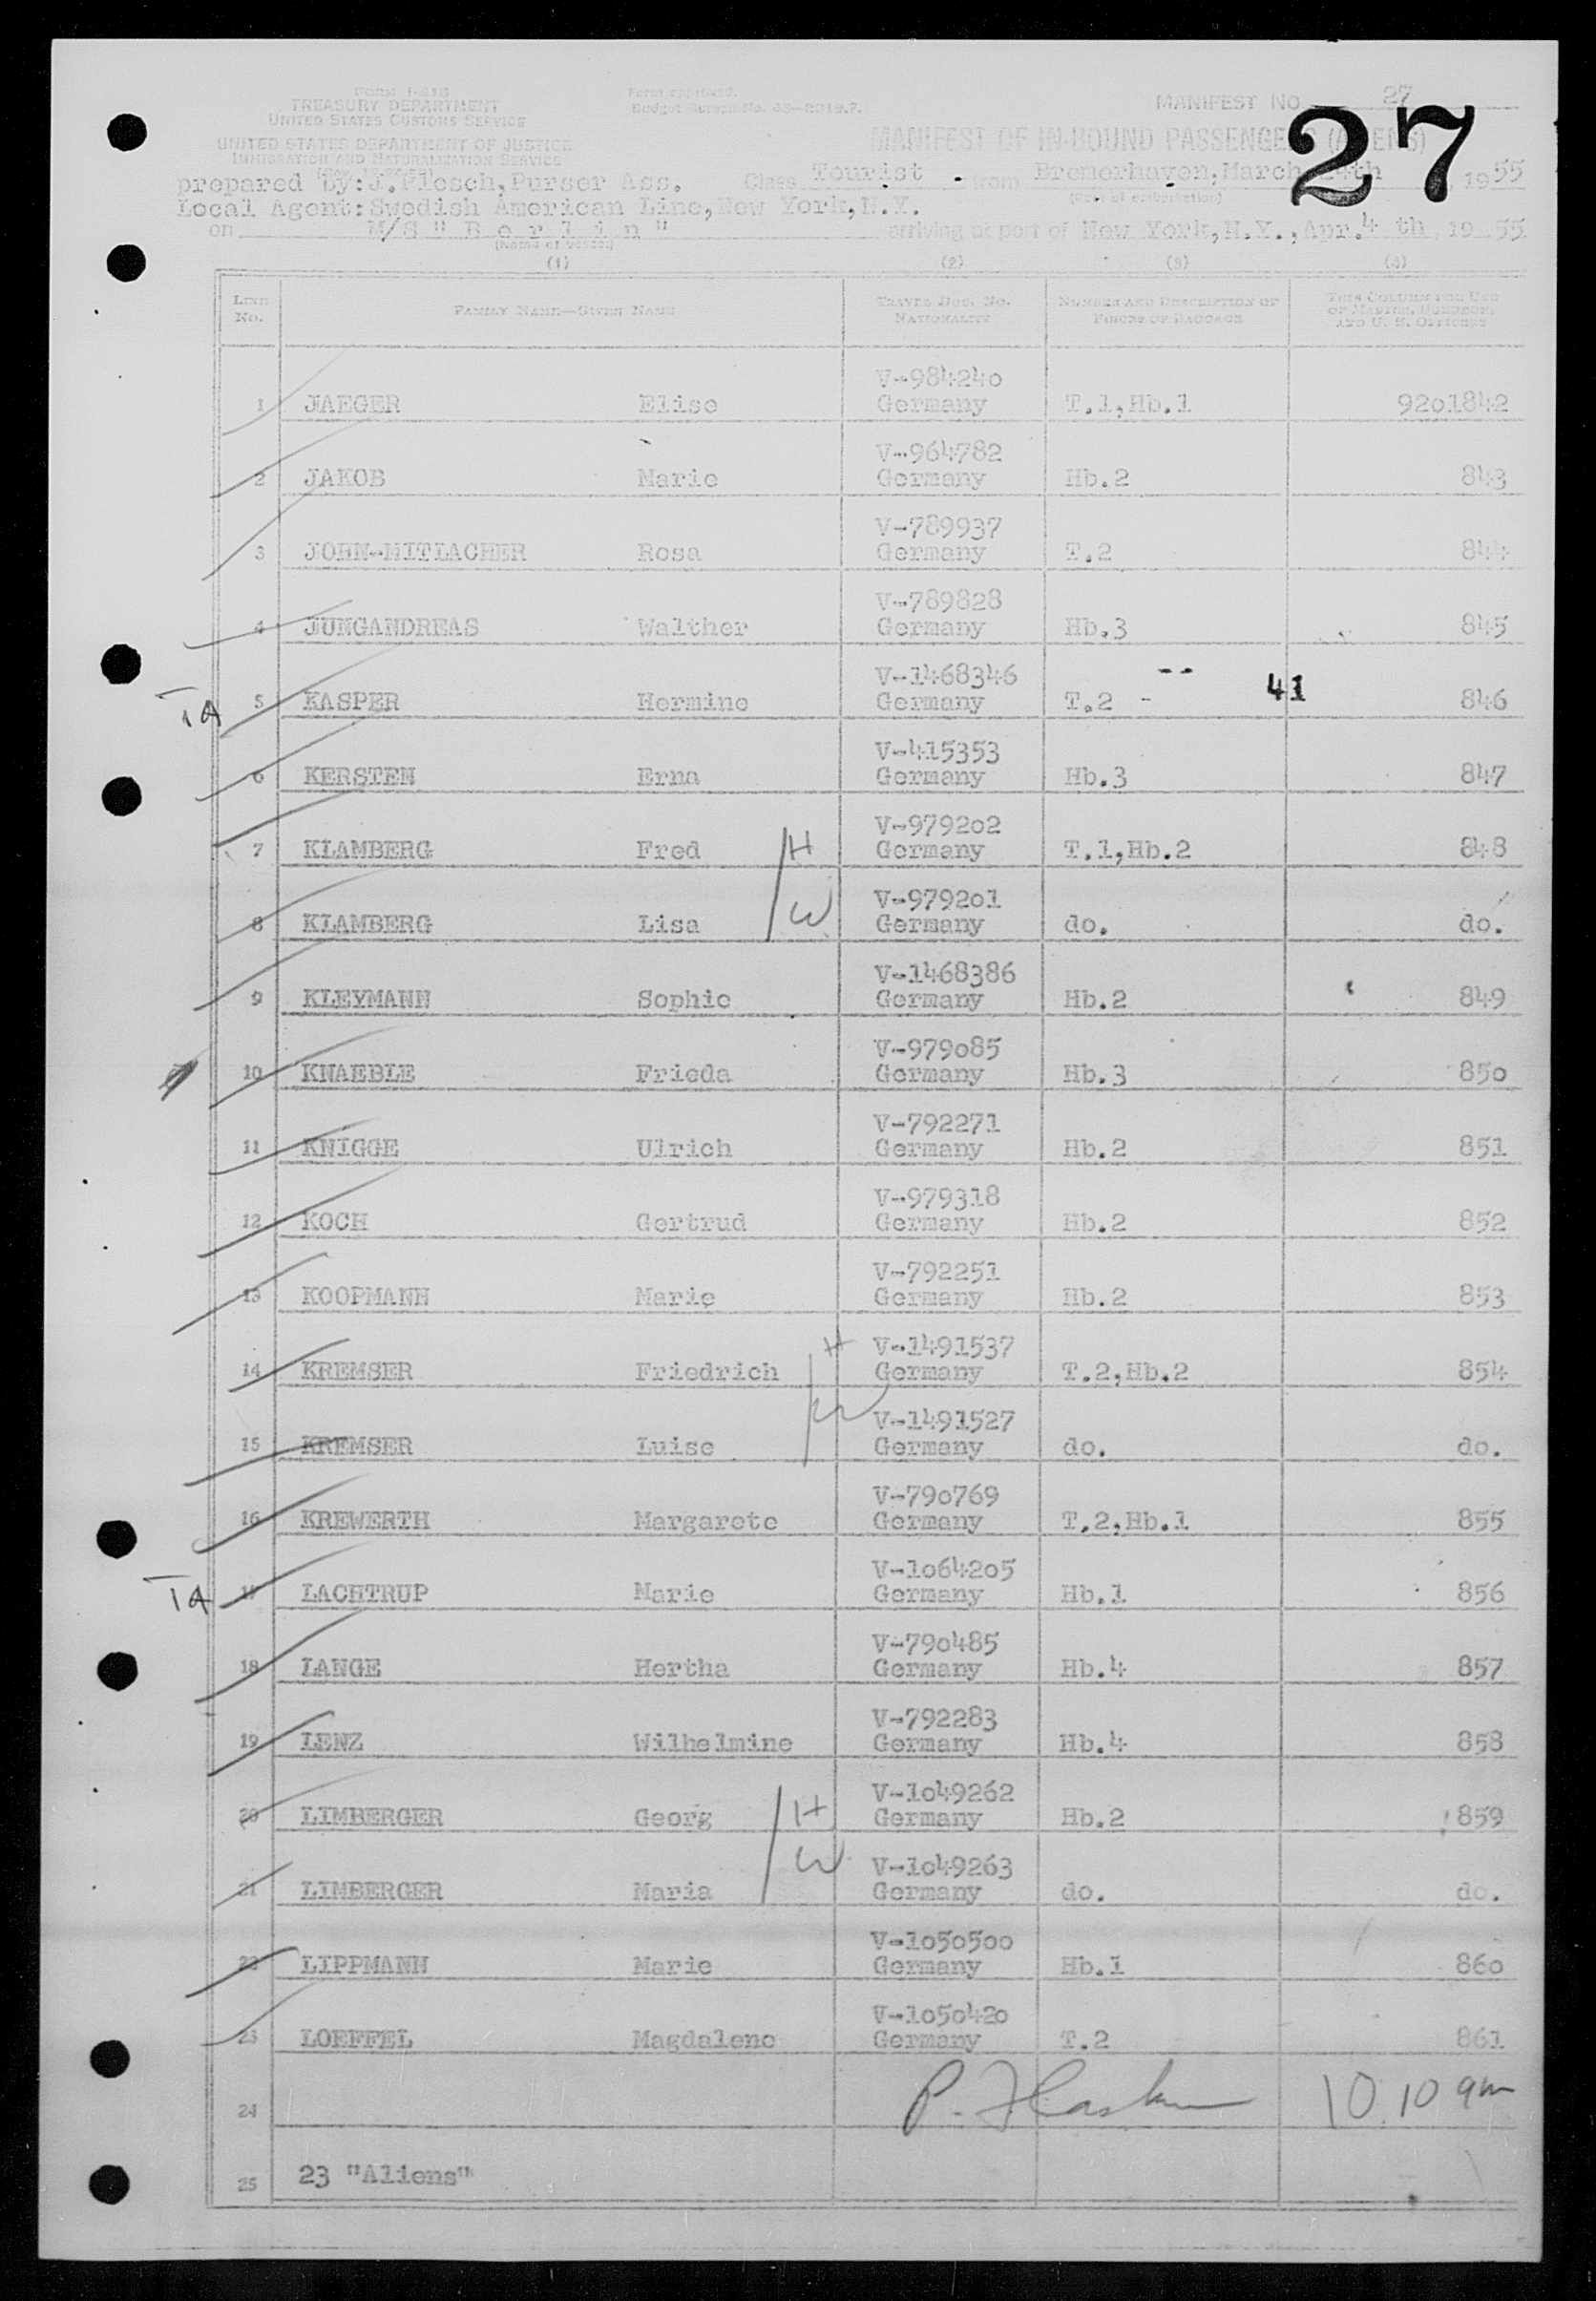 Form I-418
TREASURY DEPARTMENT
UNITED STATES CUSTOMS SERVICE
UNITED STATES DEPARTMENT OF JUSTICE
IMMIGRATION AND NATURALIZATION SERVICE
Form approved.
Budget Bureau No. 43-R019.7.
MANIFEST NO. 27
27
MANIFEST OF IN-BOUND PASSENGERS (ALIENS)
prepared by: J. Plesch, Purser Ass. Class Tourist from Bremerhaven, March 1955
(Port of embarkation)
Local Agent: Swedish American Line, New York, N.Y.
on M/S "Berlin" arriving at port of New York, N.Y., Apr. 4 th 1955
(Name of vessel)
(1) (2) (3) (4)
LINE No. FAMILY NAME—GIVEN NAME TRAVEL DOC. NO. NATIONALITY NUMBER AND DESCRIPTION OF PIECES OF BAGGAGE THIS COLUMN FOR USE OF MASTER, SURGEON, AND U. S. OFFICERS
V-984240
1 JAEGER Elise Germany T.1,Hb.1 9201842
V-964782
2 JAKOB Marie Germany Hb.2 843
V-789937
3 JOHN-MITLACHER Rosa Germany T.2 844
V-789828
4 JUNGANDREAS Walther Germany Hb.3 845
V-1468346
IA 5 KASPER Hermine Germany T.2 - 41 846
V-415353
6 KERSTEN Erna Germany Hb.3 847
V-979202
7 KLAMBERG Fred H Germany T.1,Hb.2 848
V-979201
8 KLAMBERG Lisa W Germany do. do.
V-1468386
9 KLEYMANN Sophie Germany Hb.2 849
V-979085
10 KNAEBLE Frieda Germany Hb.3 850
V-792271
11 KNIGGE Ulrich Germany Hb.2 851
V-979318
12 KOCH Gertrud Germany Hb.2 852
V-792251
13 KOOPMANN Marie Germany Hb.2 853
H V-1491537
14 KREMSER Friedrich Germany T.2,Hb.2 854
W V-1491527
15 KREMSER Luise Germany do. do.
V-790769
16 KREWERTH Margarete Germany T.2,Hb.1 855
V-1064205
IA 17 LACHTRUP Marie Germany Hb.1 856
V-790485
18 LANGE Hertha Germany Hb.4 857
V-792283
19 LENZ Wilhelmine Germany Hb.4 858
V-1049262
20 LIMBERGER Georg H Germany Hb.2 859
V-1049263
21 LIMBERGER Maria W Germany do. do.
V-1050500
22 LIPPMANN Marie Germany Hb.1 860
V-1050420
23 LOEFFEL Magdalene Germany T.2 861
24 10.10 am
25 23 "Aliens"